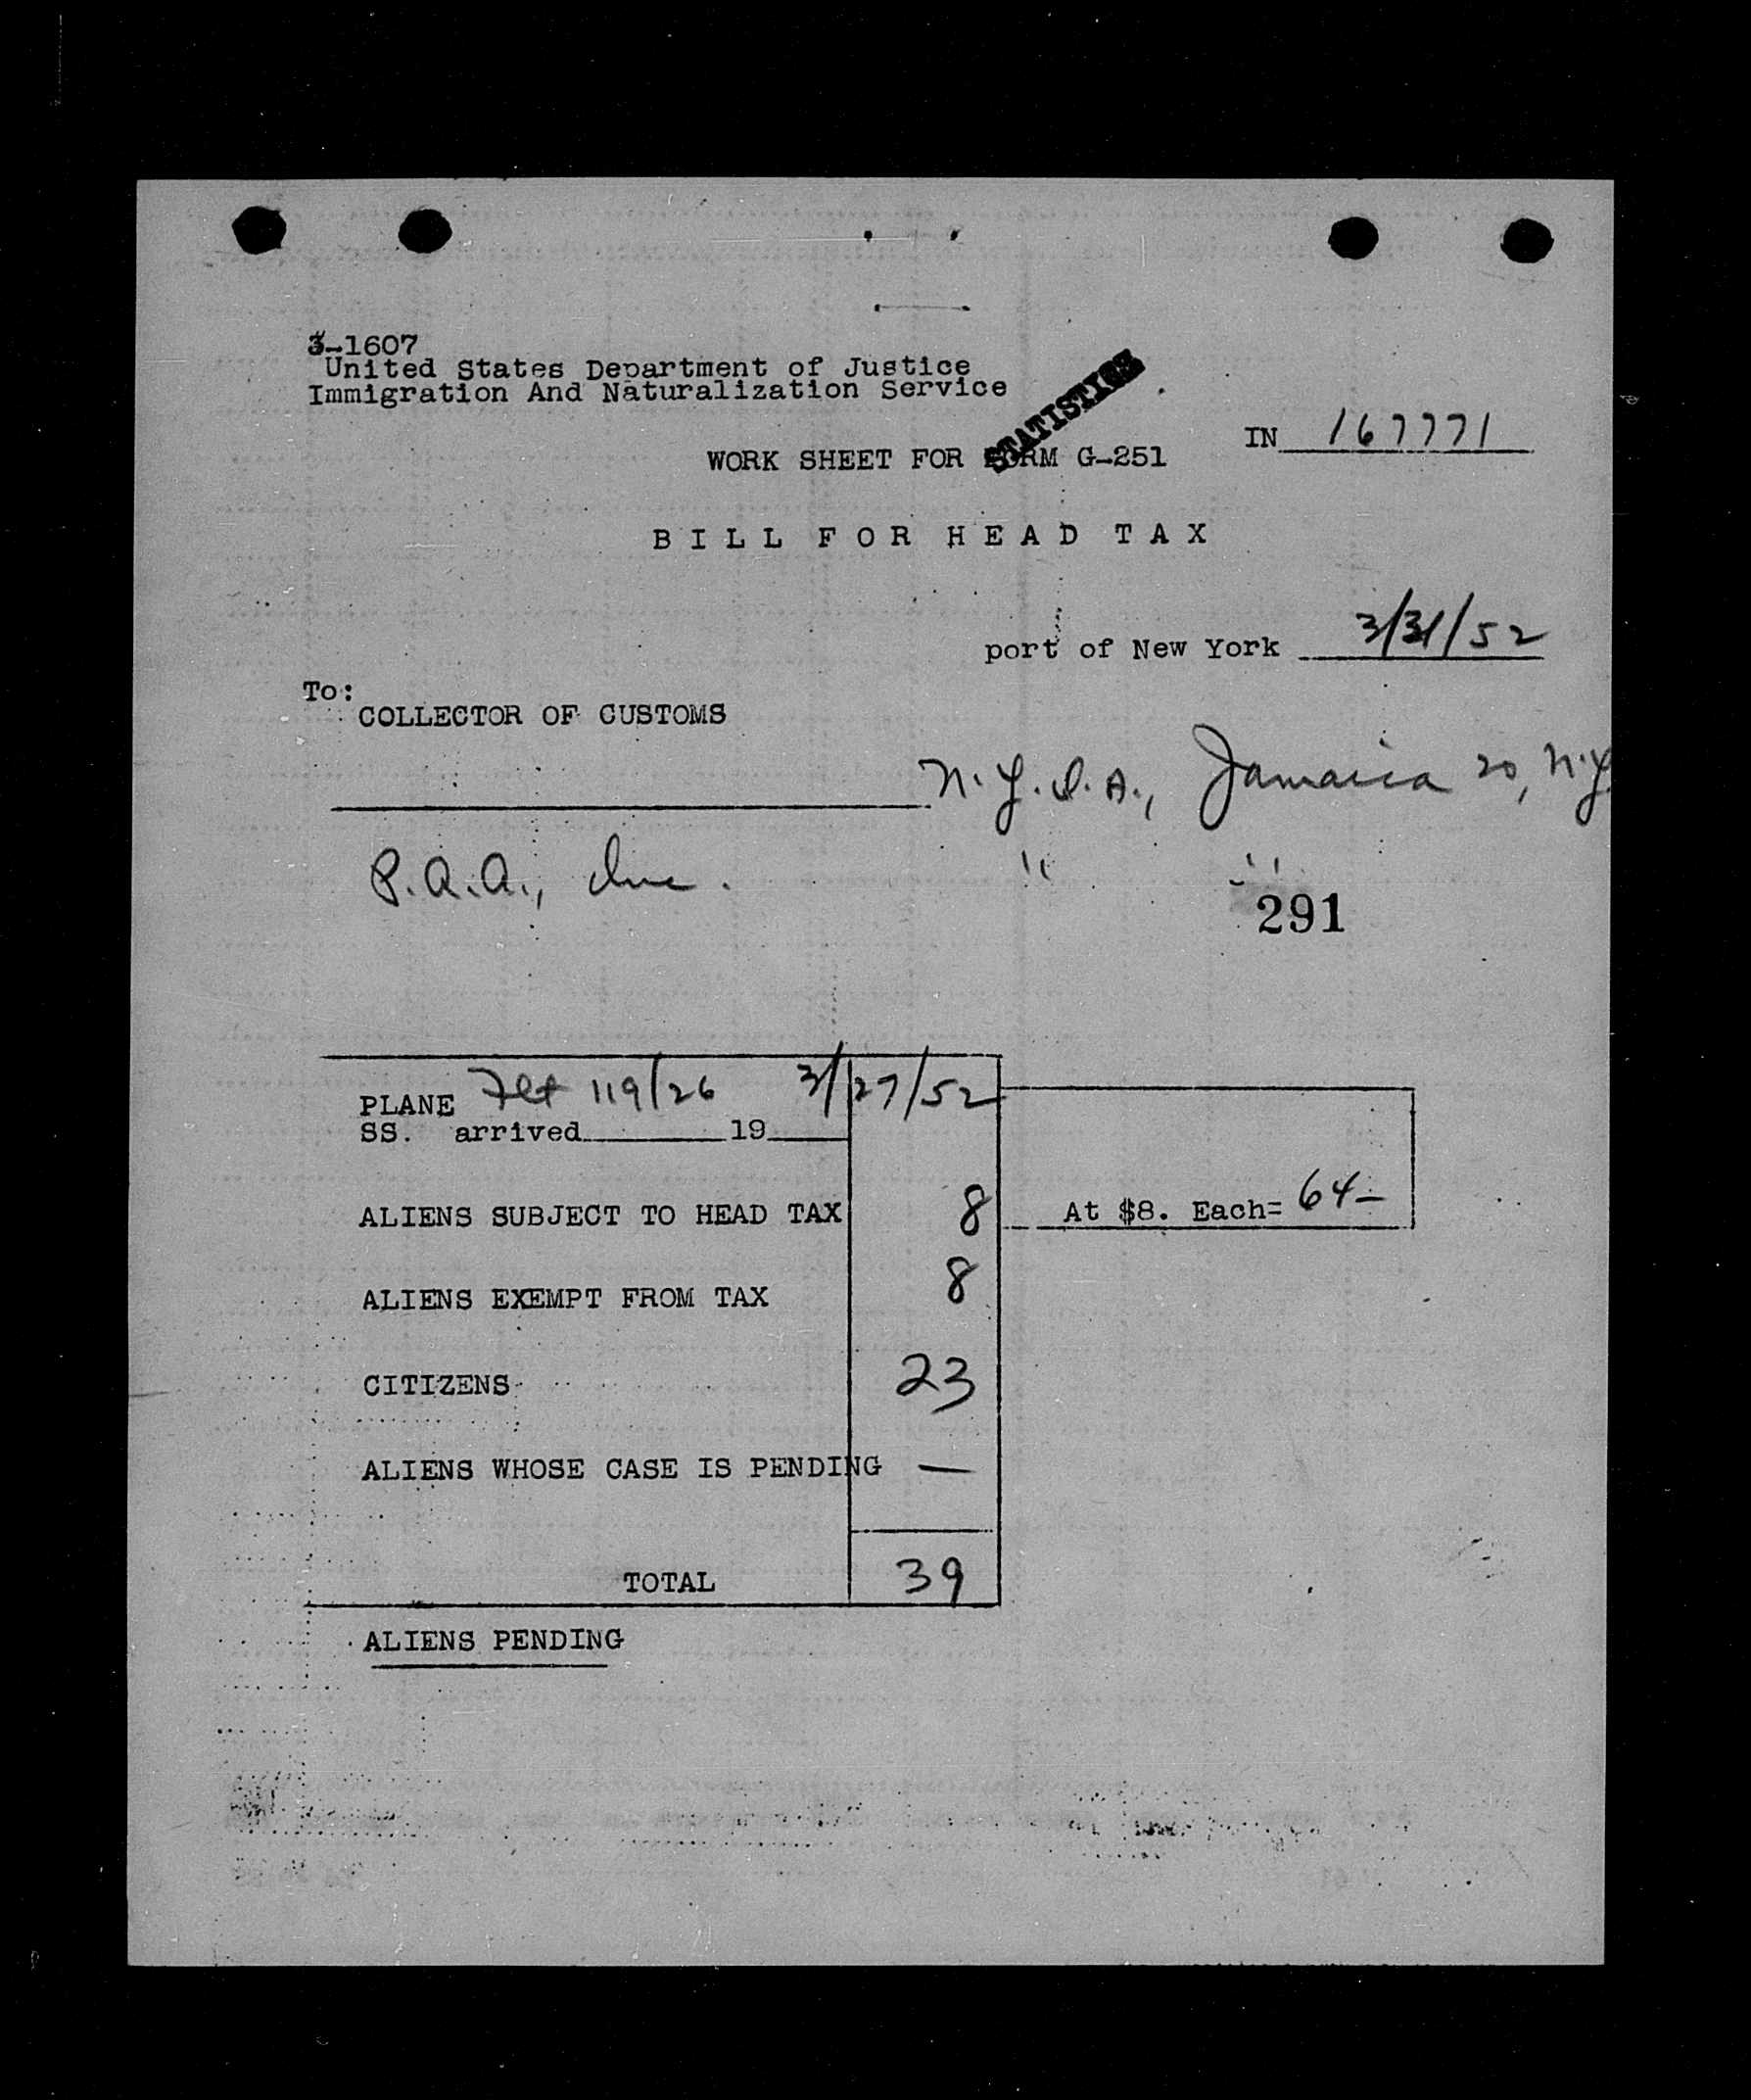 3-1607
United States Department of Justice
Immigration And Naturalization Service
STATISTICS
IN 167771
WORK SHEET FOR FORM G-251
BILL FOR HEAD TAX
port of New York 3/31/52
To:
COLLECTOR OF CUSTOMS
N.Y.I.A., Jamaica 20, N.Y.
P.A.A., Inc. " "
291
PLANE Flt 119/26 3/27/52
SS. arrived 19
ALIENS SUBJECT TO HEAD TAX 8 At $8. Each= 64-
ALIENS EXEMPT FROM TAX 8
CITIZENS 23
ALIENS WHOSE CASE IS PENDING —
TOTAL 39
ALIENS PENDING